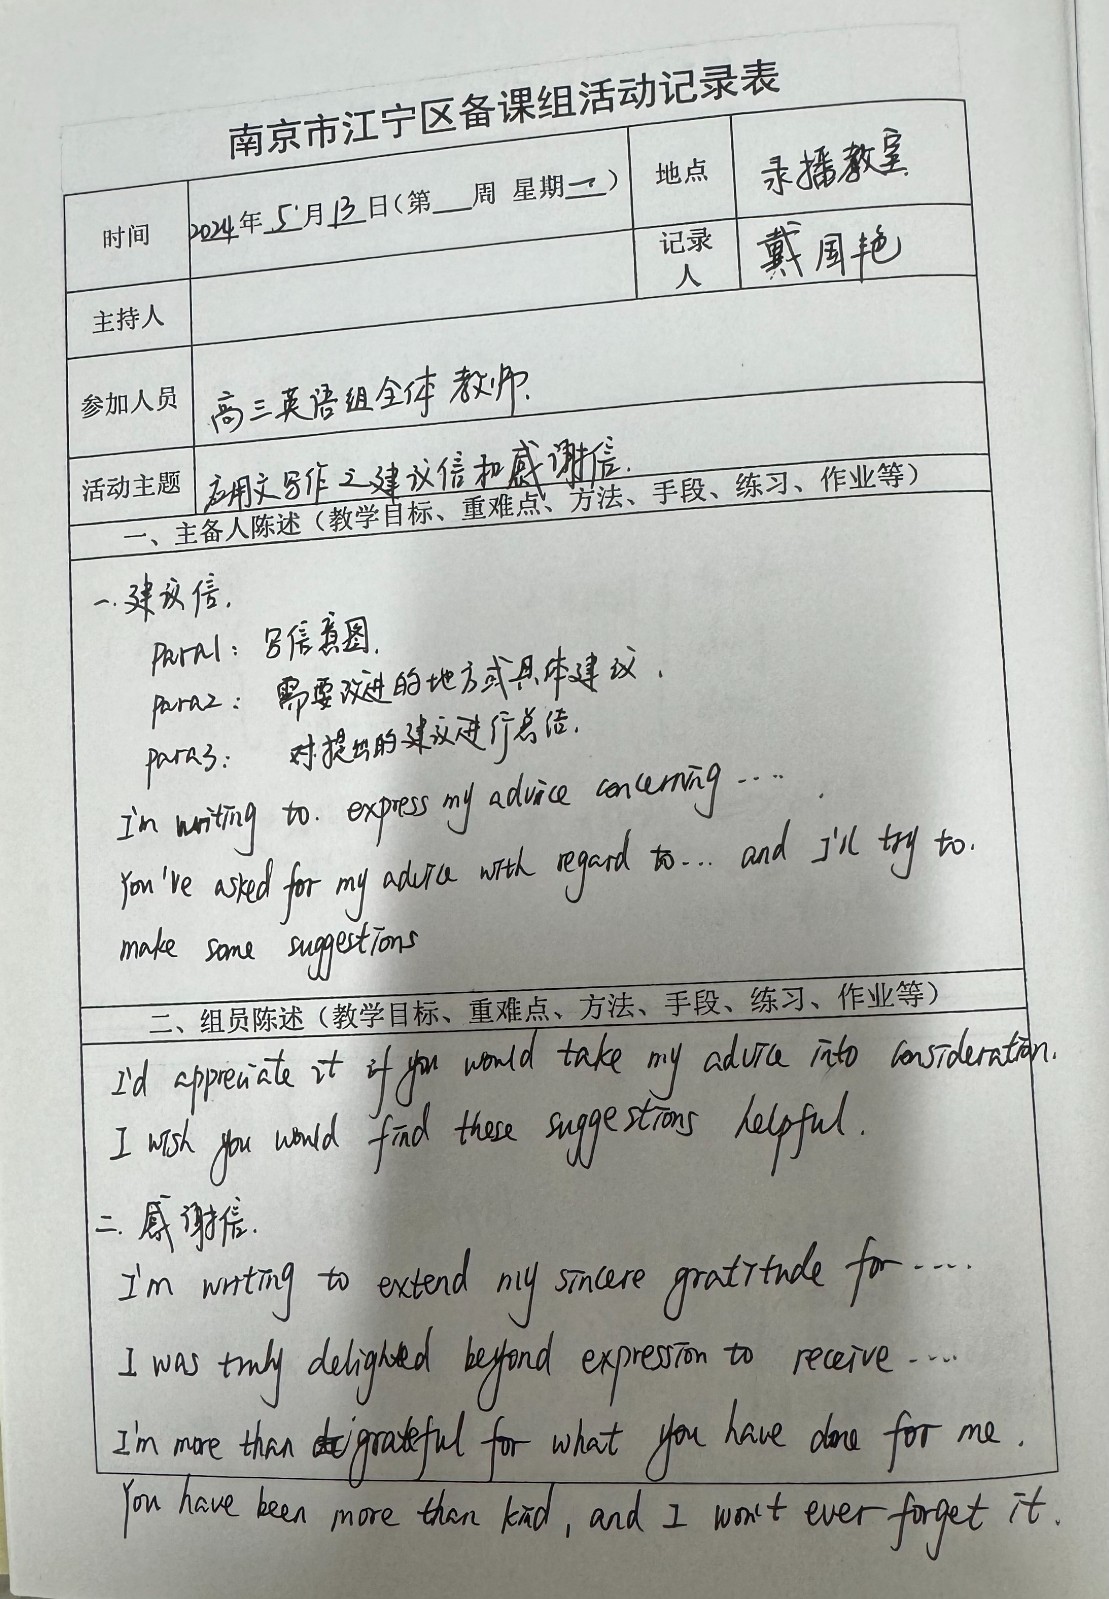 南京市江宁区备课组活动记录表
时间 2024年5月13日(第 周 星期一) 地点 录播教室
主持人 记录人 戴国艳
参加人员 高三英语组全体教师.
活动主题 应用文写作之建议信和感谢信.
一、主备人陈述（教学目标、重难点、方法、手段、练习、作业等）
一.建议信.
para1: 写信意图.
para2: 需要改进的地方或具体建议.
para3: 对提出的建议进行总结.
I'm writing to. express my advice concerning ....
You've asked for my advice with regard to... and I'll try to.
make some suggestions
二、组员陈述（教学目标、重难点、方法、手段、练习、作业等）
I'd appreciate it if you would take my advice into consideration.
I wish you would find these suggestions helpful.
二.感谢信.
I'm writing to extend my sincere gratitude for ....
I was truly delighted beyond expression to receive ....
I'm more than grateful for what you have done for me.
You have been more than kind, and I won't ever forget it.